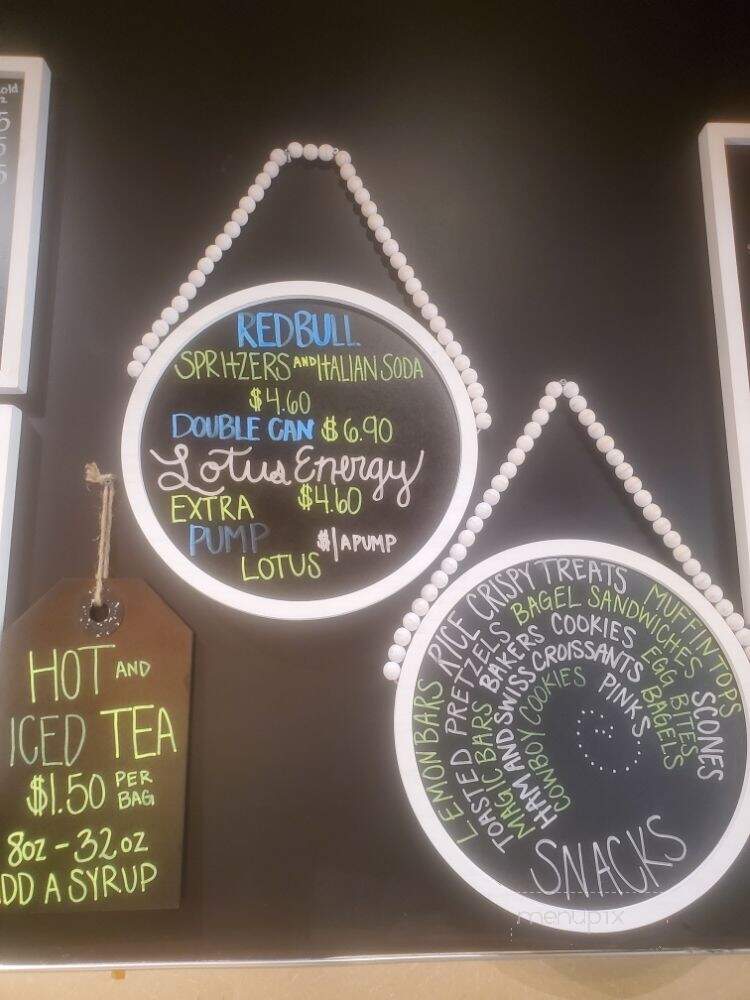 old
5
5
5
REDBULL
SPRITZERS AND ITALIAN SODA
$4.60
DOUBLE CAN $6.90
Lotus Energy
EXTRA $4.60
PUMP $1 A PUMP
LOTUS
HOT AND
ICED TEA
$1.50 PER BAG
8oz - 32oz
DD A SYRUP
LEMON BARS RICE CRISPY TREATS MUFFIN TOPS
TOASTED PRETZELS BAGEL SANDWICHES SCONES
MAGIC BARS BAKERS COOKIES EGG BITES
HAM AND SWISS CROISSANTS BAGELS
COWBOY COOKIES PINKS
SNACKS
menupix